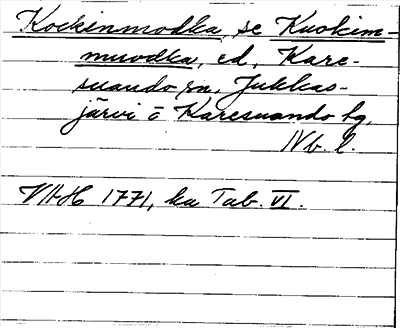 Kockinmodka, se Kuokim-
muodka, ed, Kare-
suando sn, Jukkas-
järvi o Karesuando tg,
Nb. l.
1771, ka Tab. VI.